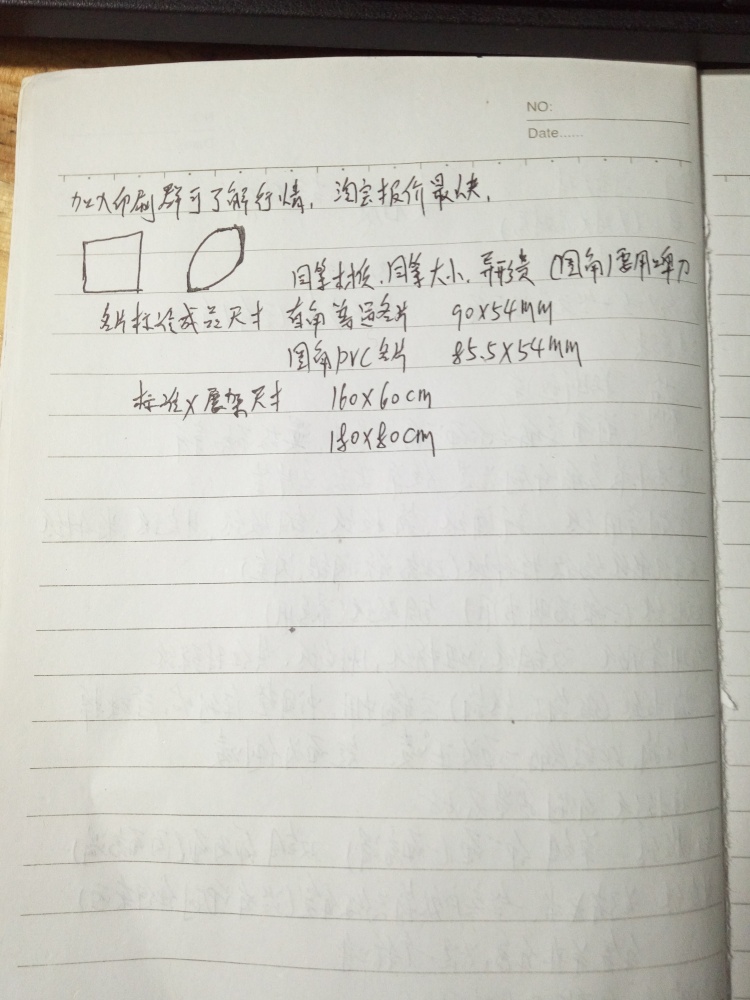 NO:
Date......
加大印刷群可了解行情，淘宝报价最快，
同等材质、同等大小、异形贵（圆角）要用啤刀
名片标准成品尺寸 直角普通名片 90X54mm
圆角PVC名片 85.5X54mm
标准X展架尺寸 160X60cm
180X80cm